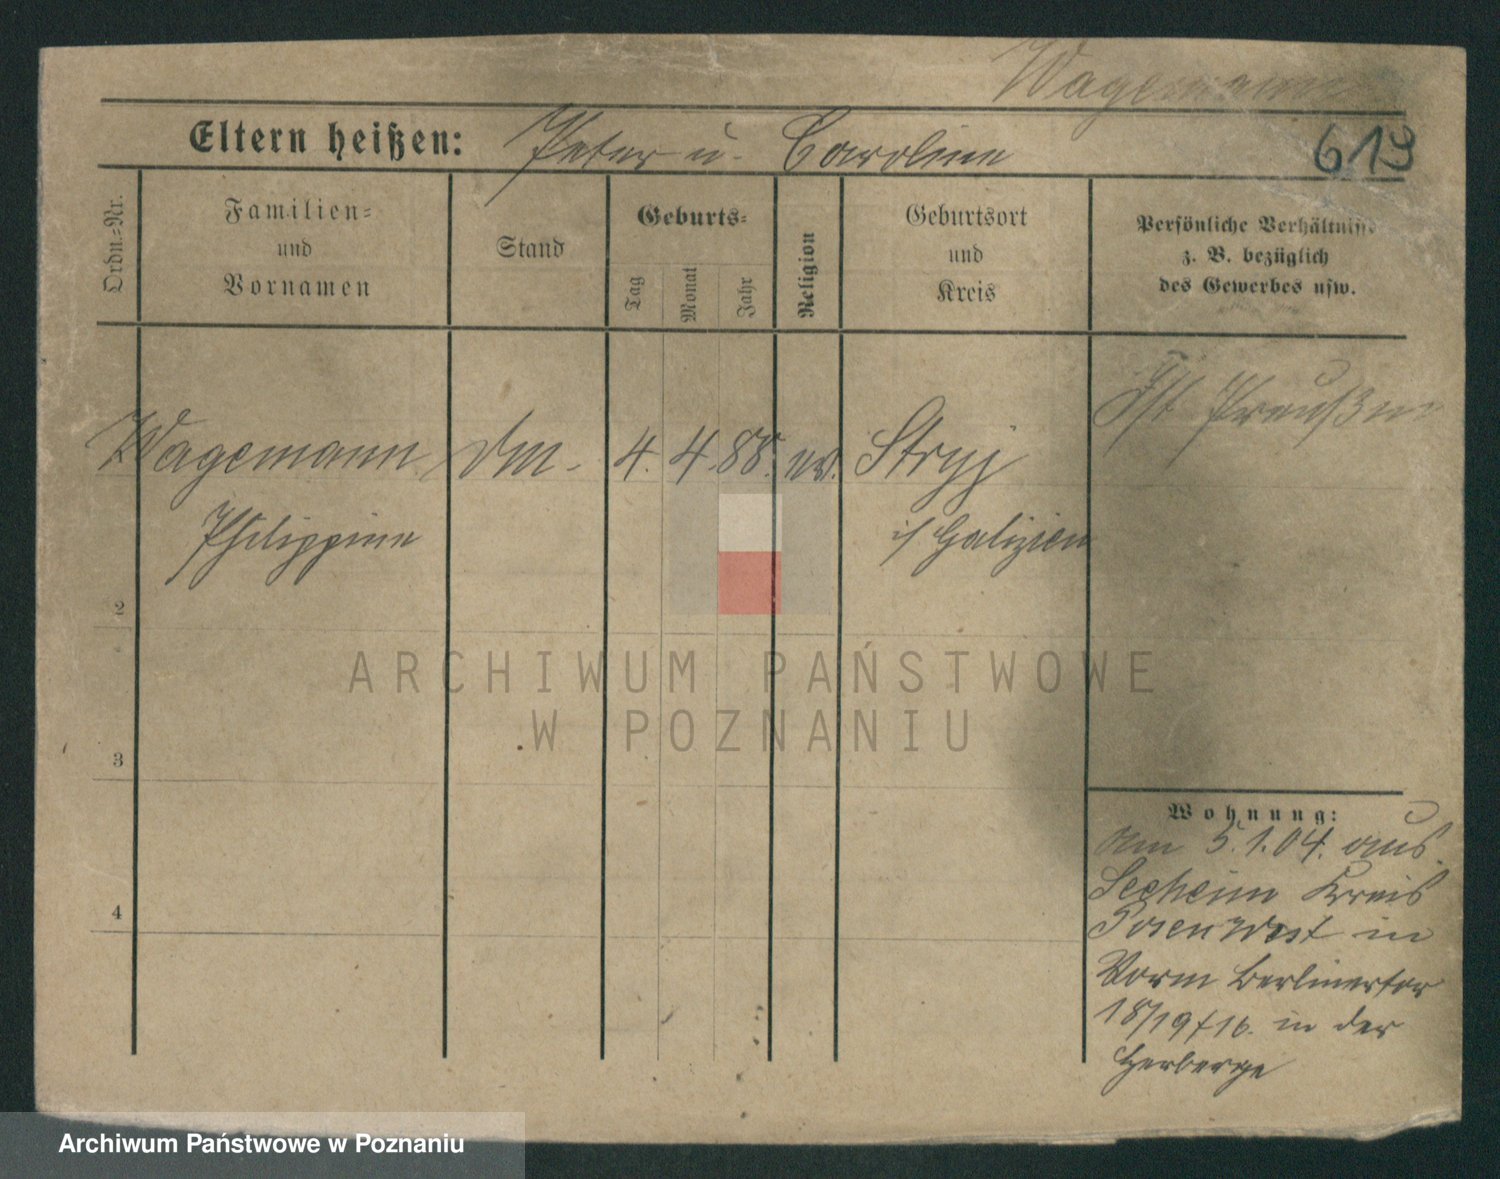 Wagemann
Eltern heißen: Peter u. Caroline
619
Ordn.=Nr.
Familien=
und
Vornamen
Stand
Geburts=
Tag
Monat
Jahr
Religion
Geburtsort
und
Kreis
Persönliche Verhältnisse
z. B. bezüglich
des Gewerbes usw.
Wagemann
Philippine
Dm.
4. 4. 88.
Stryj
i/ Galizien
Ist Preußin
2
3
4
Wohnung:
am 5.1.04. aus
Seeheim Kreis
Posen West in
Vorm Berlinertor
18/19
in der
Herberge
ARCHIWUM PAŃSTWOWE
W POZNANIU
Archiwum Państwowe w Poznaniu